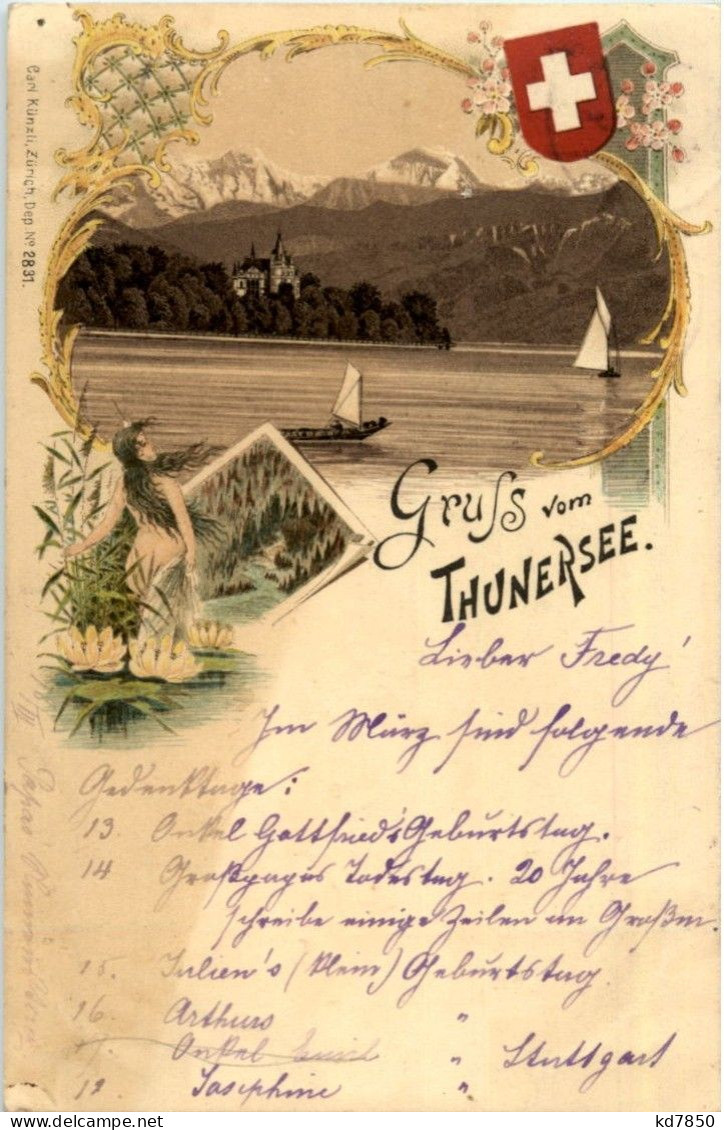 Carl Künzli, Zürich, Dep. No 2831.
Gruss vom
THUNERSEE.
Lieber Fredy!
Im März sind folgende
Gedenktage:
13. Onkel Gottfried's Geburtstag.
14 Großpapas Todestag. 20 Jahre
schreibe einige Zeilen an Großm.
15. Julien's (klein) Geburtstag
16. Arthurs "
Onkel " Stuttgart
Josephine "
kd7850